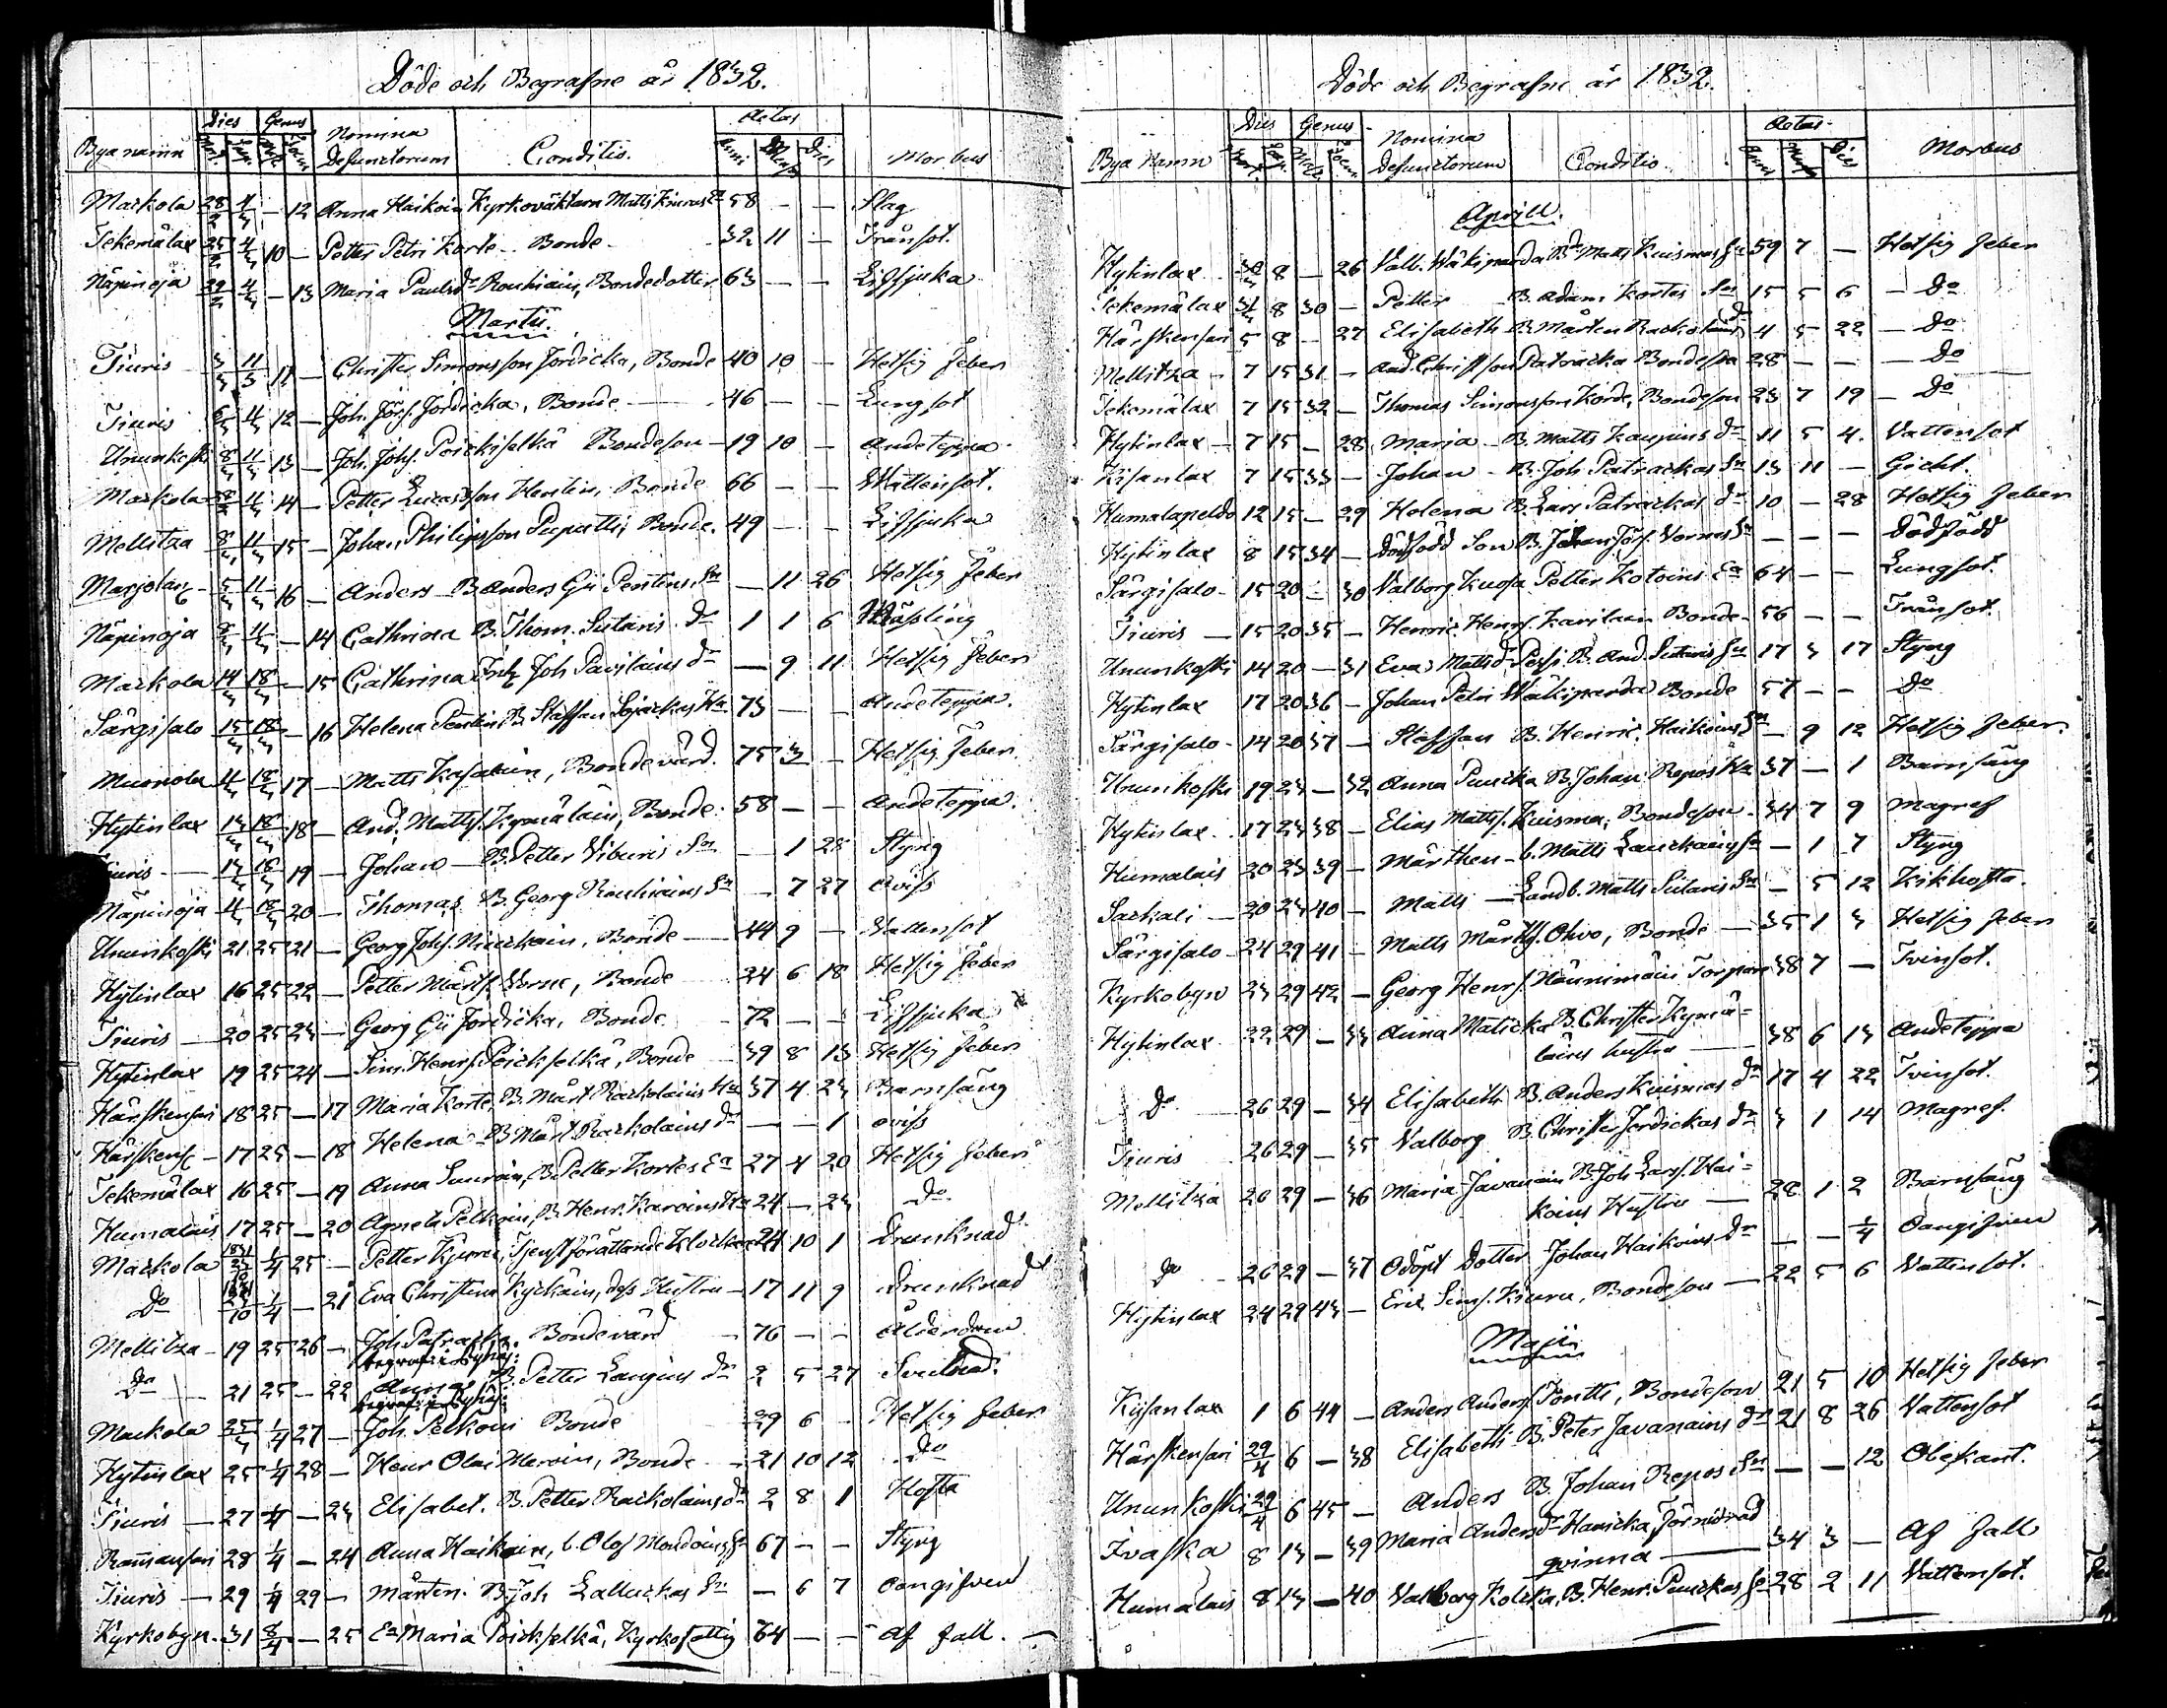 Döde och Begrafne år 1832.
Dies Genus Nomina Aetas
Byanamn Defunctorum Conditio. Anni Dies Morbus
Markola 28/2 4/3 — 12 Anna Haikoin Kyrkoväktaren Matts 58 — — Slag
Tekemälax 25/2 4/3 10 — Petter Petri Korte Bonde 32 11 — Trånsot.
Näpinoja 29/2 4/3 — 13 Maria Paulsdr Rouhiain, Bondedotter 63 — — Lifsjuka
Martii.
Tiuris 3/3 11/3 11 — Christer Simonsson Jordicka, Bonde 40 10 — Hetsig Feber
Tiuris 6/3 11/3 12 — Joh. Jörs. Jordicka, Bonde 46 — — Lungsot
Ununkoski 8/3 11/3 13 — Joh. Johs. Poickselkä Bondeson 19 10 — Andetäppa
Markola 11/3 14 — Petter Lucasson Henlin, Bonde 66 — — Wattensot.
Mellitza 8/3 11/3 15 — Johan Philipsson Puputti, Bonde. 49 — — Lifsjuka
Marjolax 5/3 11/3 16 — Anders B. Anders Penttins Sn — 11 26 Hetsig Feber
Näpinoja 9/3 11/3 — 14 Cathrina B. Thom. Sutaris dr 1 1 6 Mässling
Markola 14/3 18/3 — 15 Cathrina Joh dr — 9 11 Hetsig Feber
Särgisalo 15/3 18/3 — 16 Helena B. Staffan 73 — — Andeteppa.
Muonola 11/3 18/3 17 — Matts Kasakain, Bondevärd. 75 3 — Hetsig Feber
Hytinlax 13/3 18/3 18 — And. Mattss. Kymäläin, Bonde. 58 — — Andeteppa.
Tiuris 13/3 18/3 19 — Johan B. Petter Viburis Sn — 1 28 Styng
Näpinoja 11/3 18/3 20 — Thomas B. Georg Rouhiains Sn — 7 27 oviss
Ununkoski 21 25 21 — Georg Johs. Bonde 44 9 — Vattensot
Hytinlax 16 25 22 — Petter Mårts. Vorne, Bonde 24 6 18 Hetsig feber
Tiuris 20 25 23 — Georg Jordicka, Bonde 72 — — Lifsjuka
Hytinlax 19 25 24 — Sim. Henrs. Poickselkä, Bonde 39 8 13 Hetsig feber
Härskensari 18 25 — 17 Maria Korte, B. Mårt Rackolains Ha 37 4 23 Barnsäng
Härskens. 17 25 — 18 Helena B. Mårt Rackolains dr — — 1 oviss
Tekemälax 16 25 — 19 Anna B. Petter Kortes Ea 27 4 20 Hetsig Feber
Humalais 17 25 — 20 Agneta Pelkoin, B. Henr. Karoins Ha 24 — 23 do
Markola 1831 1/4 25 — Petter Tjenstförättande Klockare 24 10 1 Drunknad
Do 1831 10 1/4 — 21 Eva Christina Kyckäin, dess Hustru 17 11 9 Drunknad
Mellitza 19 25 26 — Joh. Patracka. Bondevärd 76 — — Ålderdom
Do 21 25 — 22 Anna B. Petter dr 2 5 27
Markola 25/3 1/4 27 — Joh. Pelkoin Bonde 29 6 — Hetsig feber
Hytinlax 25 1/4 28 — Henr Olai Meroin, Bonde 21 10 12 Do
Tiuris 27 1/4 — 23 Elisabet. B. Petter Rackolains dr 2 8 1 Hosta
28 1/4 — 24 Anna Haikoin, b. Olof 67 — — Styng
Tiuris 29 1/4 29 — Mårten B. Joh Sn — 6 7 oangifven
Kyrkobyn. 31 8/4 — 25 Ea Maria Poickselkä, Kyrkofattig 64 — — Af fall.
Döde och Begrafne år 1832.
Dies Genus Nomina Aetas
Bya Namn Defunctorum Conditio Dies Morbus
Aprill.
Hytinlax 30/3 8 — 26 Valb. Wäkiparda Bd Matts Kuismas 59 7 — Hetsig feber
Tekemälax 31/3 8 30 — Petter B. Adam Kortes Sn 15 5 6 — Do
Härskensari 5 8 — 27 Elisabeth B. Mårten Rackolains dr 4 5 22 — Do
Mellitza 7 15 31 — And. Christsson Patracka Bondeson 28 — — — Do
Tekemälax 7 15 32 — Thomas Simonsson Korte, Bondeson 23 7 19 — Do
Hytinlax 7 15 — 28 Maria B. Matts Kaupins dr 11 5 4. Vattensot
Kisanlax 7 15 33 — Johan B. Joh Patrackas Sn 13 11 — Gicht.
Humalapeldo 12 15 — 29 Helena B. Lars Patrackas dr 10 — 28 Hetsig feber
Hytinlax 8 15 34 — Dödfödd Son B. Johan Jörs. Vornes Sn — — — Dödfödd
Särgisalo 15 20 — 30 Valborg Kuosa Petter Kotoins Ea 64 — — Lungsot.
Tiuris 15 20 35 — Henric Henrs. Karilain Bonde 56 — — Trånsot.
Ununkoski 14 20 — 31 Eva Mattsd. B. And. Sutaris 17 3 17 Styng
Hytinlax 17 20 36 — Johan Petri Wäkiparda Bonde 57 — — Do
Särgisalo 14 20 37 — Staffan B. Henric Haikoins Sn — 9 12 Hetsig feber.
Ununkoski 19 23 — 32 Anna Puucka B. Johan Repos Ha 37 — 1 Barnsäng
Hytinlax 17 23 38 — Elias Mattss. Kuisma, Bondeson 34 7 9 Magref
Humalais 20 23 39 — Mårthen b. Matts Sn — 1 7 Styng
Sackali 20 23 40 — Matts Landb. Matts Sutaris Sn — 5 12 Kikhosta.
Särgisalo 24 29 41 — Matts Mårtss. Ohvo, Bonde 35 1 3 Hetsig feber
Kyrkobyn 23 29 42 — Georg Henrs. Torpare 38 7 — Tvinsot.
Hytinlax 22 29 — 33 Anna Maticka B. Christer Kymä-
läins hustru 38 6 13 Andeteppa
Do 26 29 — 34 Elisabeth B. Anders Kuismas dr 17 4 22 Tvinsot.
Tiuris 26 29 — 35 Valborg B. Christer Jordickas dr 3 1 14 Magref.
Mellitza 26 29 — 36 Maria Javanain B. Joh Larss. Hai-
koins Hustru 28 1 2 Barnsäng
Do 26 29 — 37 Odöpt Dotter Johan Haikoins dr — — 1/4 Oangifven
Hytinlax 24 29 43 — Eric Sims. Kiuru, Bondeson 22 5 6 Vattensot.
Majii
Kisanlax 1 6 44 — Anders Anderss. Bondeson 21 5 10 Hetsig feber
Härskensari 29/4 6 — 38 Elisabeth B. Peter Javanains dr 21 8 26 Vattensot
Ununkoski 29/4 6 45 — Anders B. Johan Repos Sn — — 12 Obekant.
Ivaska 8 13 — 39 Maria Andersdr Förmånad
qvinna 34 3 — Af fall
Humalais 8 13 — 40 Valborg B. Henr. Puuckas 28 2 11 Vattensot.